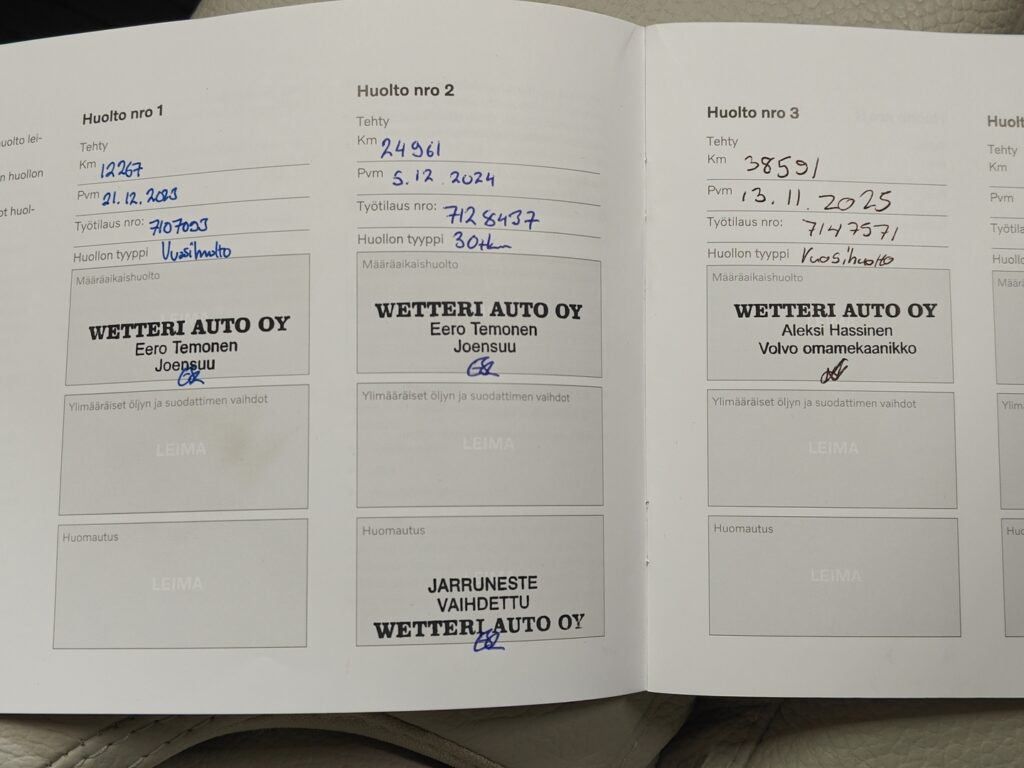 uolto lei-
n huollon
ot huol-
Huolto nro 1
Tehty
Km 12267
Pvm 21.12.2023
Työtilaus nro: 7107093
Huollon tyyppi Vuosihuolto
Määräaikaishuolto
WETTERI AUTO OY
Eero Temonen
Joensuu
Ylimääräiset öljyn ja suodattimen vaihdot
LEIMA
Huomautus
LEIMA
Huolto nro 2
Tehty
Km 24961
Pvm 5.12.2024
Työtilaus nro: 7128437
Huollon tyyppi 30tkm
Määräaikaishuolto
WETTERI AUTO OY
Eero Temonen
Joensuu
Ylimääräiset öljyn ja suodattimen vaihdot
LEIMA
Huomautus
JARRUNESTE
VAIHDETTU
WETTERI AUTO OY
Huolto nro 3
Tehty
Km 38591
Pvm 13.11.2025
Työtilaus nro: 7147571
Huollon tyyppi Vuosihuolto
Määräaikaishuolto
WETTERI AUTO OY
Aleksi Hassinen
Volvo omamekaanikko
Ylimääräiset öljyn ja suodattimen vaihdot
LEIMA
Huomautus
LEIMA
Huolt
Tehty
Km
Pvm
Työtila
Huollo
Määrä
Ylim
Huo